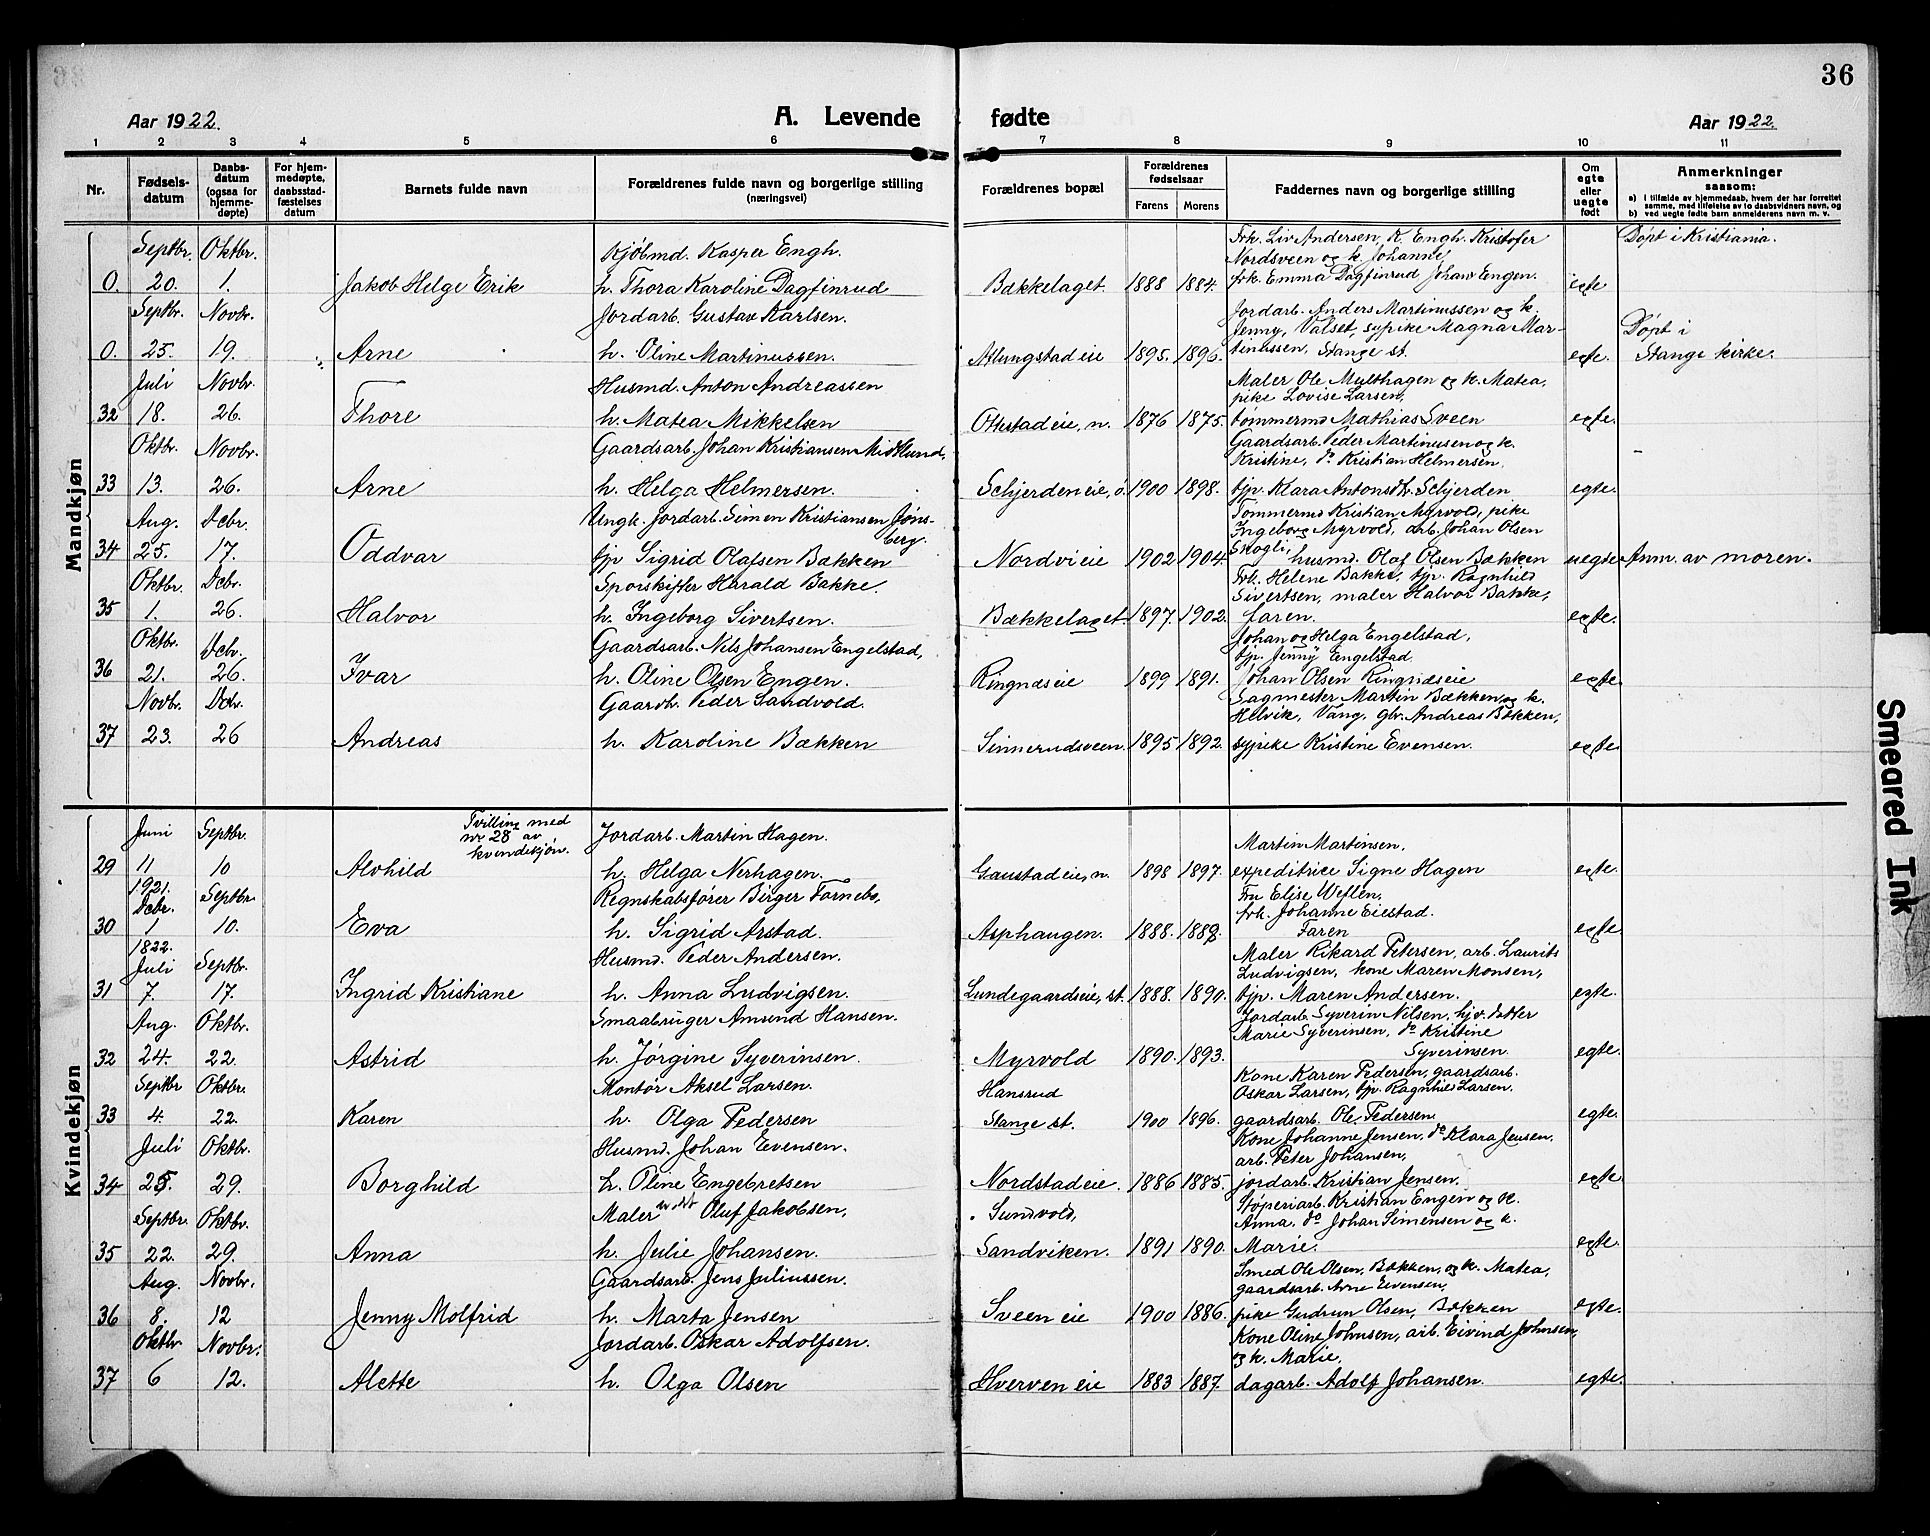 36
Aar 1922.
A. Levende fødte
Aar 1922.
1 2 3 4 5 6 7 8 9 10 11
Nr.
Fødsels-
datum
Daabs-
datum
(ogsaa for
hjemme-
døpte)
For hjem-
medøpte,
daabsstad-
fæstelses
datum
Barnets fulde navn
Forældrenes fulde navn og borgerlige stilling
(næringsvei)
Forældrenes bopæl
Forældrenes
fødselsaar
Farens Morens
Faddernes navn og borgerlige stilling
Om
egte
eller
uegte
født
Anmerkninger
saasom:
a) I tilfælde av hjemmedaab, hvem der har forrettet
samme, med tilføielse av to daabsvidners navn, og
b) ved uegte fødte barn anmelderens navn m. v.
Mandkjøn
Septbr. Oktbr. Kjøbmd. Kasper Engh. Frk. Liv Andersen, K. Engh. Kristofer Døpt i Kristiania.
Nordsveen og k. Johanne,
0. 20. 1. Jakob Helge Erik h. Thora Karoline Dagfinrud Bækkelaget. 1888 1884. frk. Emma Dagfinrud Johan Engen. egte
Septbr. Novbr. Jordarb. Gustav Karlsen. Jordarb. Anders Martinussen og k.
Jenny, Valset, sypike Magna Mar- Døpt i
0. 25. 19. Arne h. Oline Martinussen. Atlungstad eie 1895. 1896. tinussen, Stange st. egte. Stange kirke.
Juli Novbr. Husmd. Anton Andreassen Maler Ole Mylthagen og k. Matea,
pike Lovise Larsen,
32 18. 26. Thore h. Matea Mikkelsen Ottestad eie, n. 1876 1875. tømmermd Mathias Sveen egte.
Oktbr. Novbr. Gaardsarb. Johan Kristiansen Midtlund, Gaardsarb. Peder Martinusen og k.
Kristine, do Kristian Helmersen.
33 13. 26. Arne h. Helga Helmersen. Schjerden eie, ø. 1900 1898. tjp. Klara Antonsdtr. Schjerden egte.
Aug. Dcbr. Ungk. Jordarb. Simen Kristiansen Jøns-
berg. Tømmermd Kristian Myrvold, pike
Ingeborg Myrvold, arb. Johan Olsen
34 25. 17. Oddvar tjp Sigrid Olafsen Bækken Nordvi eie 1902 1904. Skogli, husmd. Olaf Olsen Bækken uegte Anm. av moren.
Oktbr. Dcbr. Sporskifter Harald Bakke. Frk. Helene Bakke, tjp. Ragnhild
Sivertsen, maler Halvor Bakke,
35 1. 26. Halvor h. Ingeborg Sivertsen. Bækkelaget. 1897. 1902. faren. egte.
Oktbr. Dcbr. Gaardsarb. Nils Johansen Engelstad, Johan og Helga Engelstad,
tjp. Jenny Engelstad
36 21. 26. Ivar h. Oline Olsen Engen. Ringnæseie 1899 1891. Johan Olsen Ringnæseie egte.
Novbr. Dcbr. Gaardbr. Peder Sandvold. Sagmester Martin Bækken og k.
Helvik, Vang, gbr. Andreas Bækken,
37 23. 26 Andreas h. Karoline Bækken Sinnerudsveen. 1895 1892. sypike Kristine Evensen. egte.
Kvindekjøn
Juni Septbr. Tvilling med
nr 28 av
kvindekjøn. Jordarb. Martin Hagen. Martin Martinsen,
29 11 10 Alvhild h. Helga Nerhagen. Gaustad eie, n. 1898 1897. expeditrice Signe Hagen egte.
1921. Dcbr. Septbr. Regnskabsfører Birger Fornebo, Fru Elise Weflen,
frk. Johanne Eiestad.
30 1 10. Eva h. Sigrid Arstad. Asphaugen. 1888. 1889. Faren egte.
1822. Juli Septbr. Husmd. Peder Andersen. Maler Rikard Petersen, arb. Laurits
Ludvigsen, kone Maren Monsen,
31 7. 17. Ingrid Kristiane h. Anna Ludvigsen. Lundegaardseie, st. 1888. 1890. tjp. Maren Andersen. egte.
Aug. Oktbr. Smaabruger Amund Hansen. Jordarb. Syverin Nilsen, hjv. datter
Marie Syverinsen, do Kristine
32 24. 22. Astrid h. Jørgine Syverinsen. Myrvold 1890. 1893. Syverinsen egte.
Septbr Oktbr. Kontor Aksel Larsen. Hansrud Kone Karen Pedersen, gaardsarb.
Oskar Larsen, tjp. Ragnhild Larsen.
33 4. 22. Karen h. Olga Pedersen Stange st. 1900 1896. gaardsarb. Ole Pedersen. egte.
Juli Oktbr. Husmd. Johan Evensen. Kone Johanne Jensen, do Klara Jensen,
arb. Peter Johansen,
34 25. 29. Borghild h. Oline Engebretsen Nordstad eie. 1886 1885. jordarb. Kristian Jensen. egte.
Septbr. Oktbr. Maler Oluf Jakobsen, Sundvold, Støperiarb. Kristian Engen og k.
Anna, do Johan Simensen og k.
35 22. 29. Anna h. Julie Johansen. Sandviken. 1891 1890. Marie. egte.
Aug. Novbr. Gaardsarb. Jens Juliussen. Smed Ole Olsen, Bækken, og k. Matea,
gaardsarb. Arne Evensen,
36 8. 12 Jenny Molfrid h. Marta Jensen Sveen eie 1900 1886. pike Gudrun Olsen, Bækken egte.
Oktbr Novbr. Jordarb. Oskar Adolfsen. Kone Oline Johnsen, arb. Eivind Johnsen,
og k. Marie,
37 6 12. Alette h. Olga Olsen Hverven eie 1883 1887. dagarb. Adolf Johansen. egte.
Smeared Ink